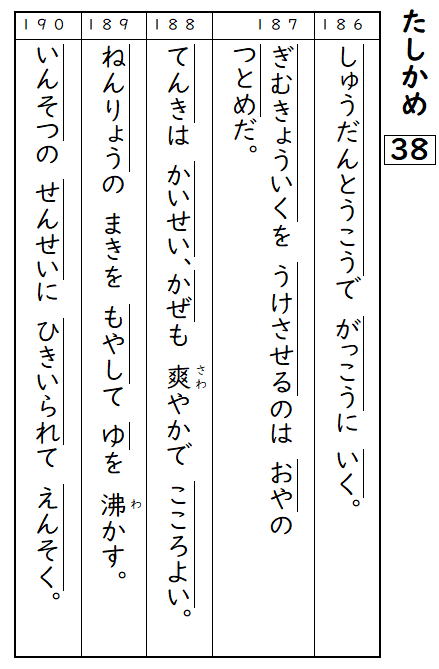 たしかめ
38
186
しゅうだんとうこうで がっこうに いく。
187
ぎむきょういくを うけさせるのは おやの
つとめだ。
188
てんきは かいせい、かぜも 爽やかで こころよい。
さわ
189
ねんりょうの まきを もやして ゆを 沸かす。
わ
190
いんそつの せんせいに ひきいられて えんそく。